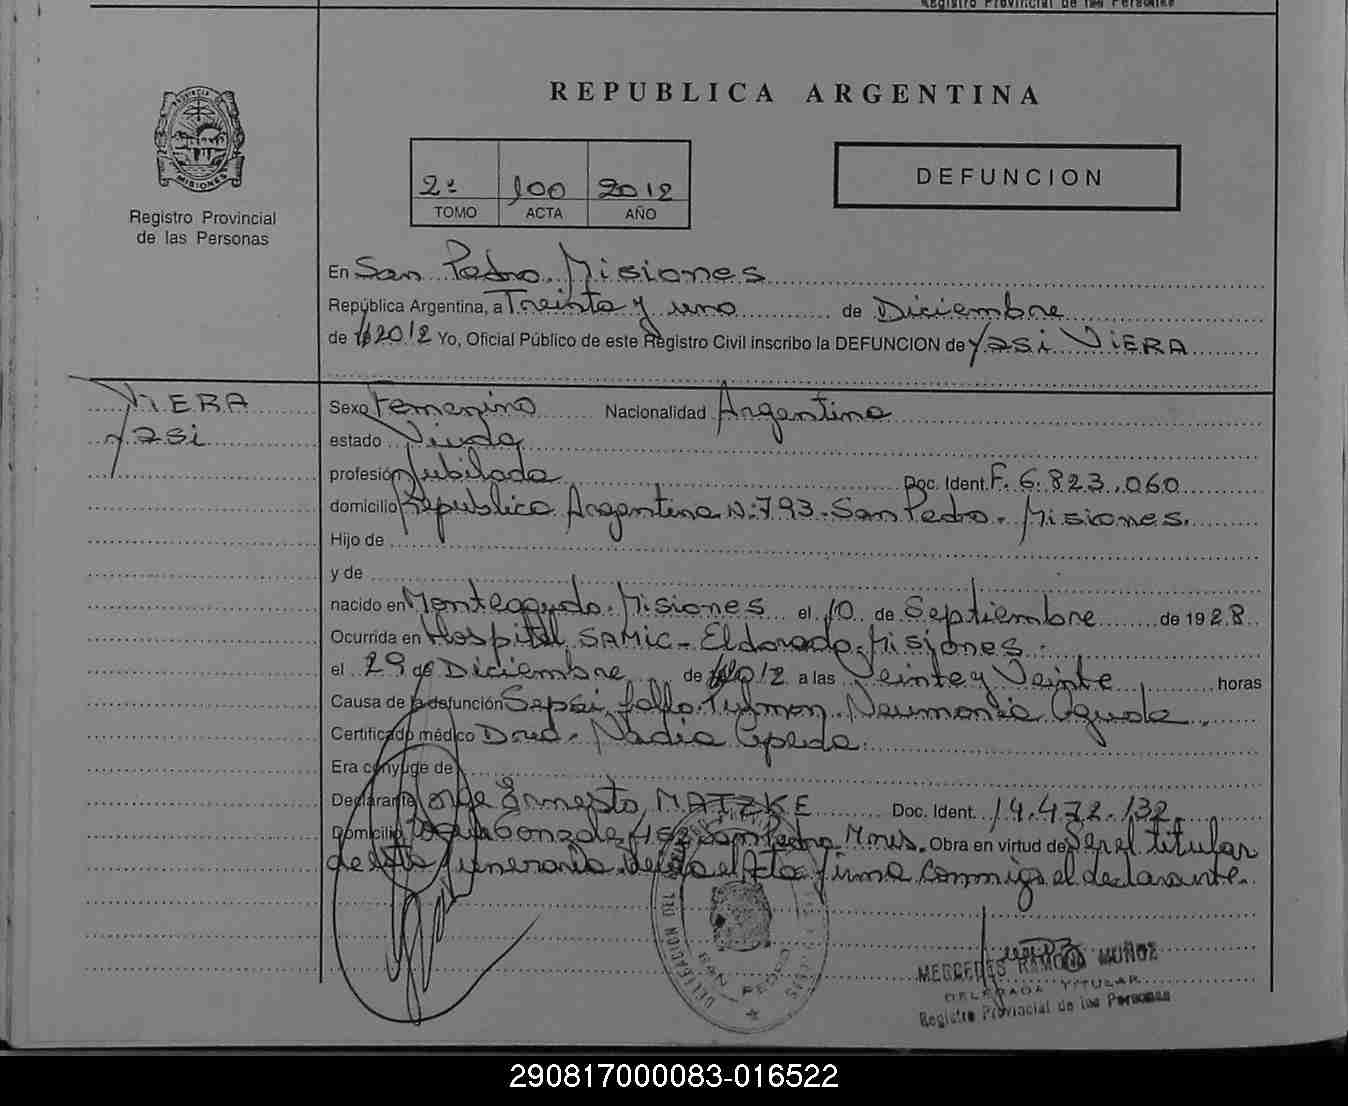 Registro Provincial de las Personas
REPUBLICA ARGENTINA
2º 100 2012
TOMO ACTA AÑO
DEFUNCION
PROVINCIA DE
MISIONES
Registro Provincial
de las Personas
En San Pedro. Misiones
República Argentina, a Treinta y uno de Diciembre
de 2012 Yo, Oficial Público de este Registro Civil inscribo la DEFUNCION de Yasi VIERA
VIERA
Yasi
Sexo Femenino Nacionalidad Argentina
estado Viuda
profesión Jubilada Doc. Ident. F. 6.823.060
domicilio Republica Argentina N: 793. San Pedro. Misiones.
Hijo de
y de
nacido en Monteagudo. Misiones el 10 de Septiembre de 1928
Ocurrida en Hospital SAMIC - Eldorado. Misiones.
el 29 de Diciembre de 2012 a las Veinte y Veinte horas
Causa de la defunción falla Neumonia Aguda.
Certificado médico Nadia Cepeda.
Era cónyuge de
Declarante Jorge Ernesto MATZKE Doc. Ident. 14.472.132
Domicilio San Pedro Mnes. Obra en virtud de Ser el titular
de esta funeraria. el Acta firma Conmigo el declarante.
DELEGACION
SAN PEDRO
MERCEDES RAMONA MUÑOZ
DELEGADA TITULAR
Registro Provincial de las Personas
290817000083-016522